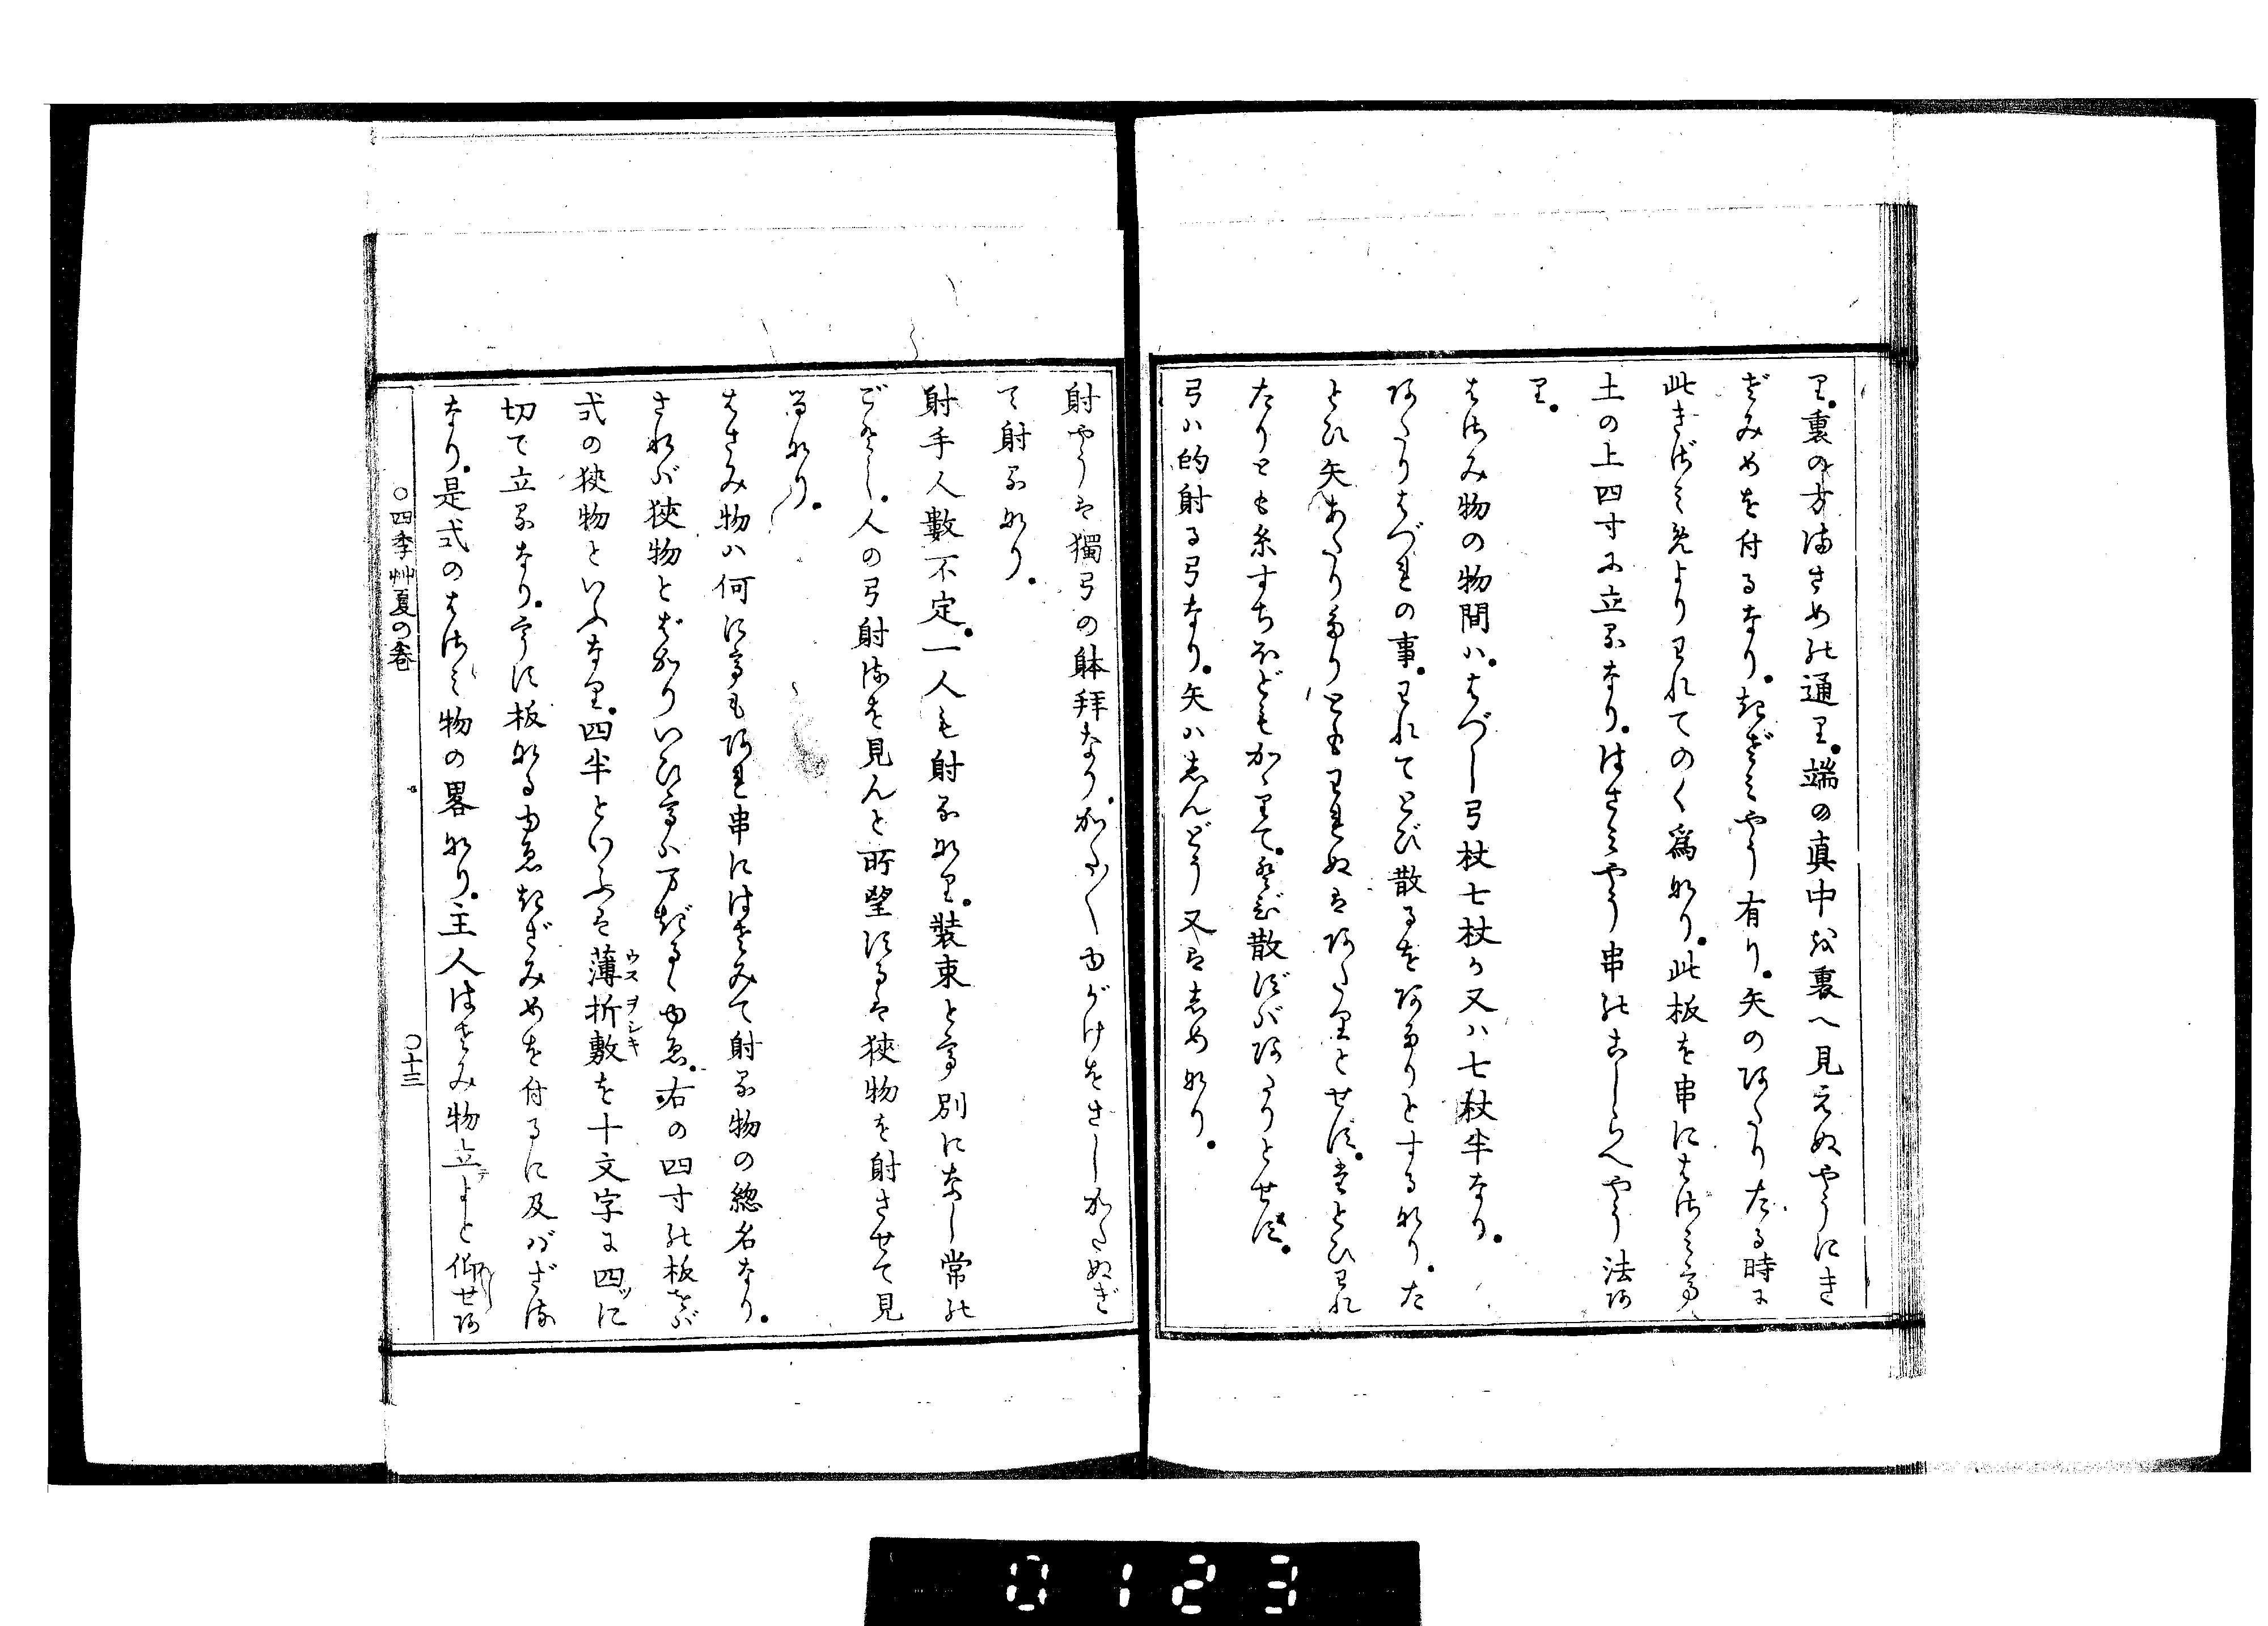 り。裏の方はすめの通り。端の真中を裏へ見えぬやうにき
ざみめを付るなり。きざみやう有り。矢のあたりたる時に
此きざみ先よりわれてのく為なり。此板を串にはさみて
土の上四寸に立るなり。はさみやう串のこしらへやう法あ
り。
はさみ物の物間ハ。はづし弓杖七杖か又ハ七杖半なり。
あたりはづれの事。われてとび散るをあたりとするなり。た
とひ矢あたりたりともわれぬはあたりとせず。たとひわれ
たりとも糸すぢほどもかゝりて。とび散ずばあたりとせず。
弓ハ的射る弓なり。矢ハしんどう又はしめなり。
射やうは獨弓の躰拜なり。かた〳〵ゆがけをさしかたぬぎ
て射るなり。
射手人數不定。一人も射るなり。裝束とて別になし常の
ごとし。人の弓射るを見んと所望するは狹物を射させて見
るなり。
はさみ物ハ何にてもあれ串にはさみて射る物の總名なり。
されば狹物とばかりいひてハ万ぎるゝゆゑ。右の四寸の板をば
式の狹物といふなり。四半といふは薄折敷を十文字に四ッに
ウスヲシキ
切て立るなり。常に板なるゆゑきざみめを付るに及バざる
なり。是式のはさみ物の畧なり。主人はさみ物立よと仰せあ
○四季艸夏の卷
○十三
0123